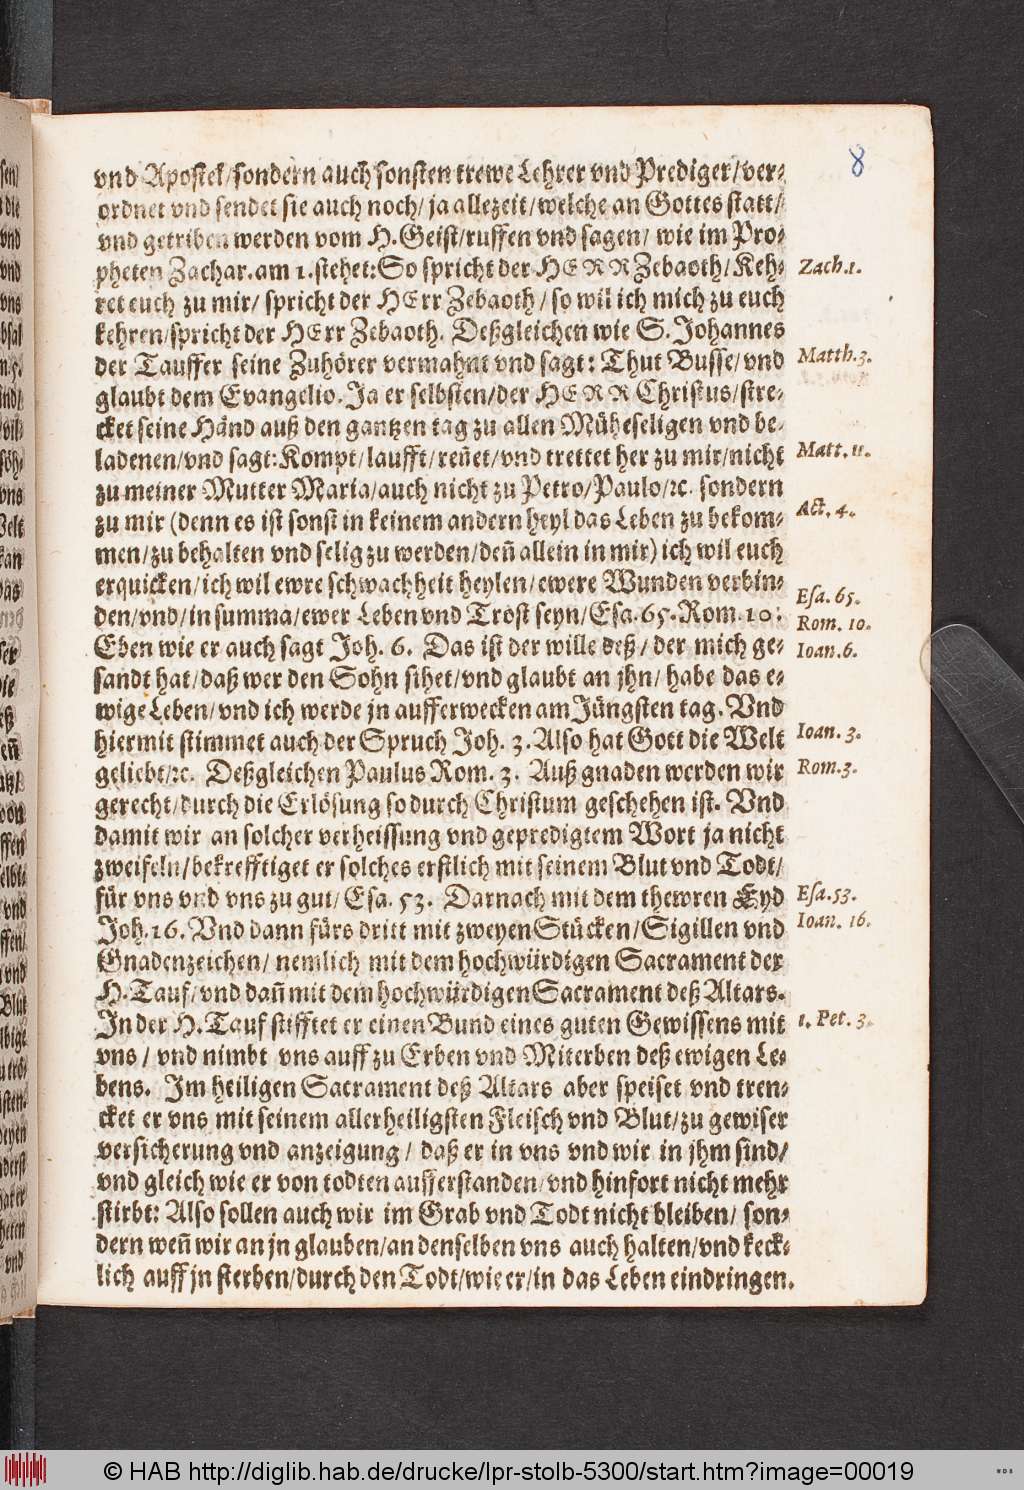 8
vnd Apostel/sondern auch sonsten trewe Lehrer vnd Prediger/ver-
ordnet vnd sendet sie auch noch/ ja allezeit/welche an Gottes statt/
vnd getriben werden vom H. Geist/ruffen vnd sagen/ wie im Pro-
pheten Zachar. am 1. stehet: So spricht der HERR Zebaoth/ Keh-
Zach.1.
ret euch zu mir/ spricht der HErr Zebaoth / so wil ich mich zu euch
kehren/spricht der HErr Zebaoth. Deßgleichen wie S. Johannes
der Tauffer seine Zuhörer vermahnt vnd sagt: Thut Busse/ vnd
Matth.3.
glaubt dem Evangelio. Ja er selbsten/der HERR Christus/stre-
cket seine Händ auß den gantzen tag zu allen Müheseligen vnd be-
ladenen/vnd sagt: Kompt/laufft/reñet/vnd trettet her zu mir/nicht
Matt. 11.
zu meiner Mutter Maria/auch nicht zu Petro/Paulo/ꝛc. sondern
zu mir (denn es ist sonst in keinem andern heyl das Leben zu bekom-
Act. 4.
men/zu behalten vnd selig zu werden/deñ allein in mir) ich wil euch
erquicken/ich wil ewre schwachheit heylen/ewere Wunden verbin-
den/vnd/in summa/ewer Leben vnd Trost seyn/Esa.65. Rom. 10.
Esa. 65.
Rom. 10.
Eben wie er auch sagt Joh. 6. Das ist der wille deß/ der mich ge-
Ioan.6.
sandt hat/daß wer den Sohn sihet/vnd glaubt an jhn/ habe das e-
wige Leben/ vnd ich werde jn aufferwecken am Jüngsten tag. Vnd
hiermit stimmet auch der Spruch Joh. 3. Also hat Gott die Welt
Ioan. 3.
geliebt/ꝛc. Deßgleichen Paulus Rom. 3. Auß gnaden werden wir
Rom.3.
gerecht/durch die Erlösung so durch Christum geschehen ist. Vnd
damit wir an solcher verheissung vnd gepredigtem Wort ja nicht
zweifeln/bekrefftiget er solches erstlich mit seinem Blut vnd Todt/
für vns vnd vns zu gut/ Esa. 53. Darnach mit dem thewren Eyd
Esa.53.
Joh.16. Vnd dann fürs dritt mit zweyen Stücken/Sigillen vnd
Ioan. 16.
Gnadenzeichen/ nemlich mit dem hochwürdigen Sacrament der
H. Tauf/vnd dañ mit dem hochwürdigen Sacrament deß Altars.
In der H. Tauf stifftet er einen Bund eines guten Gewissens mit
1. Pet. 3.
vns / vnd nimbt vns auff zu Erben vnd Miterben deß ewigen Le-
bens. Im heiligen Sacrament deß Altars aber speiset vnd tren-
cket er vns mit seinem allerheiligsten Fleisch vnd Blut/zu gewiser
versicherung vnd anzeigung / daß er in vns vnd wir in jhm sind/
vnd gleich wie er von todten aufferstanden/vnd hinfort nicht mehr
stirbt: Also sollen auch wir im Grab vnd Todt nicht bleiben/ son-
dern weñ wir an jn glauben/an denselben vns auch halten/vnd keck-
lich auff jn sterben/durch den Todt/wie er/in das Leben eindringen.
© HAB http://diglib.hab.de/drucke/lpr-stolb-5300/start.htm?image=00019